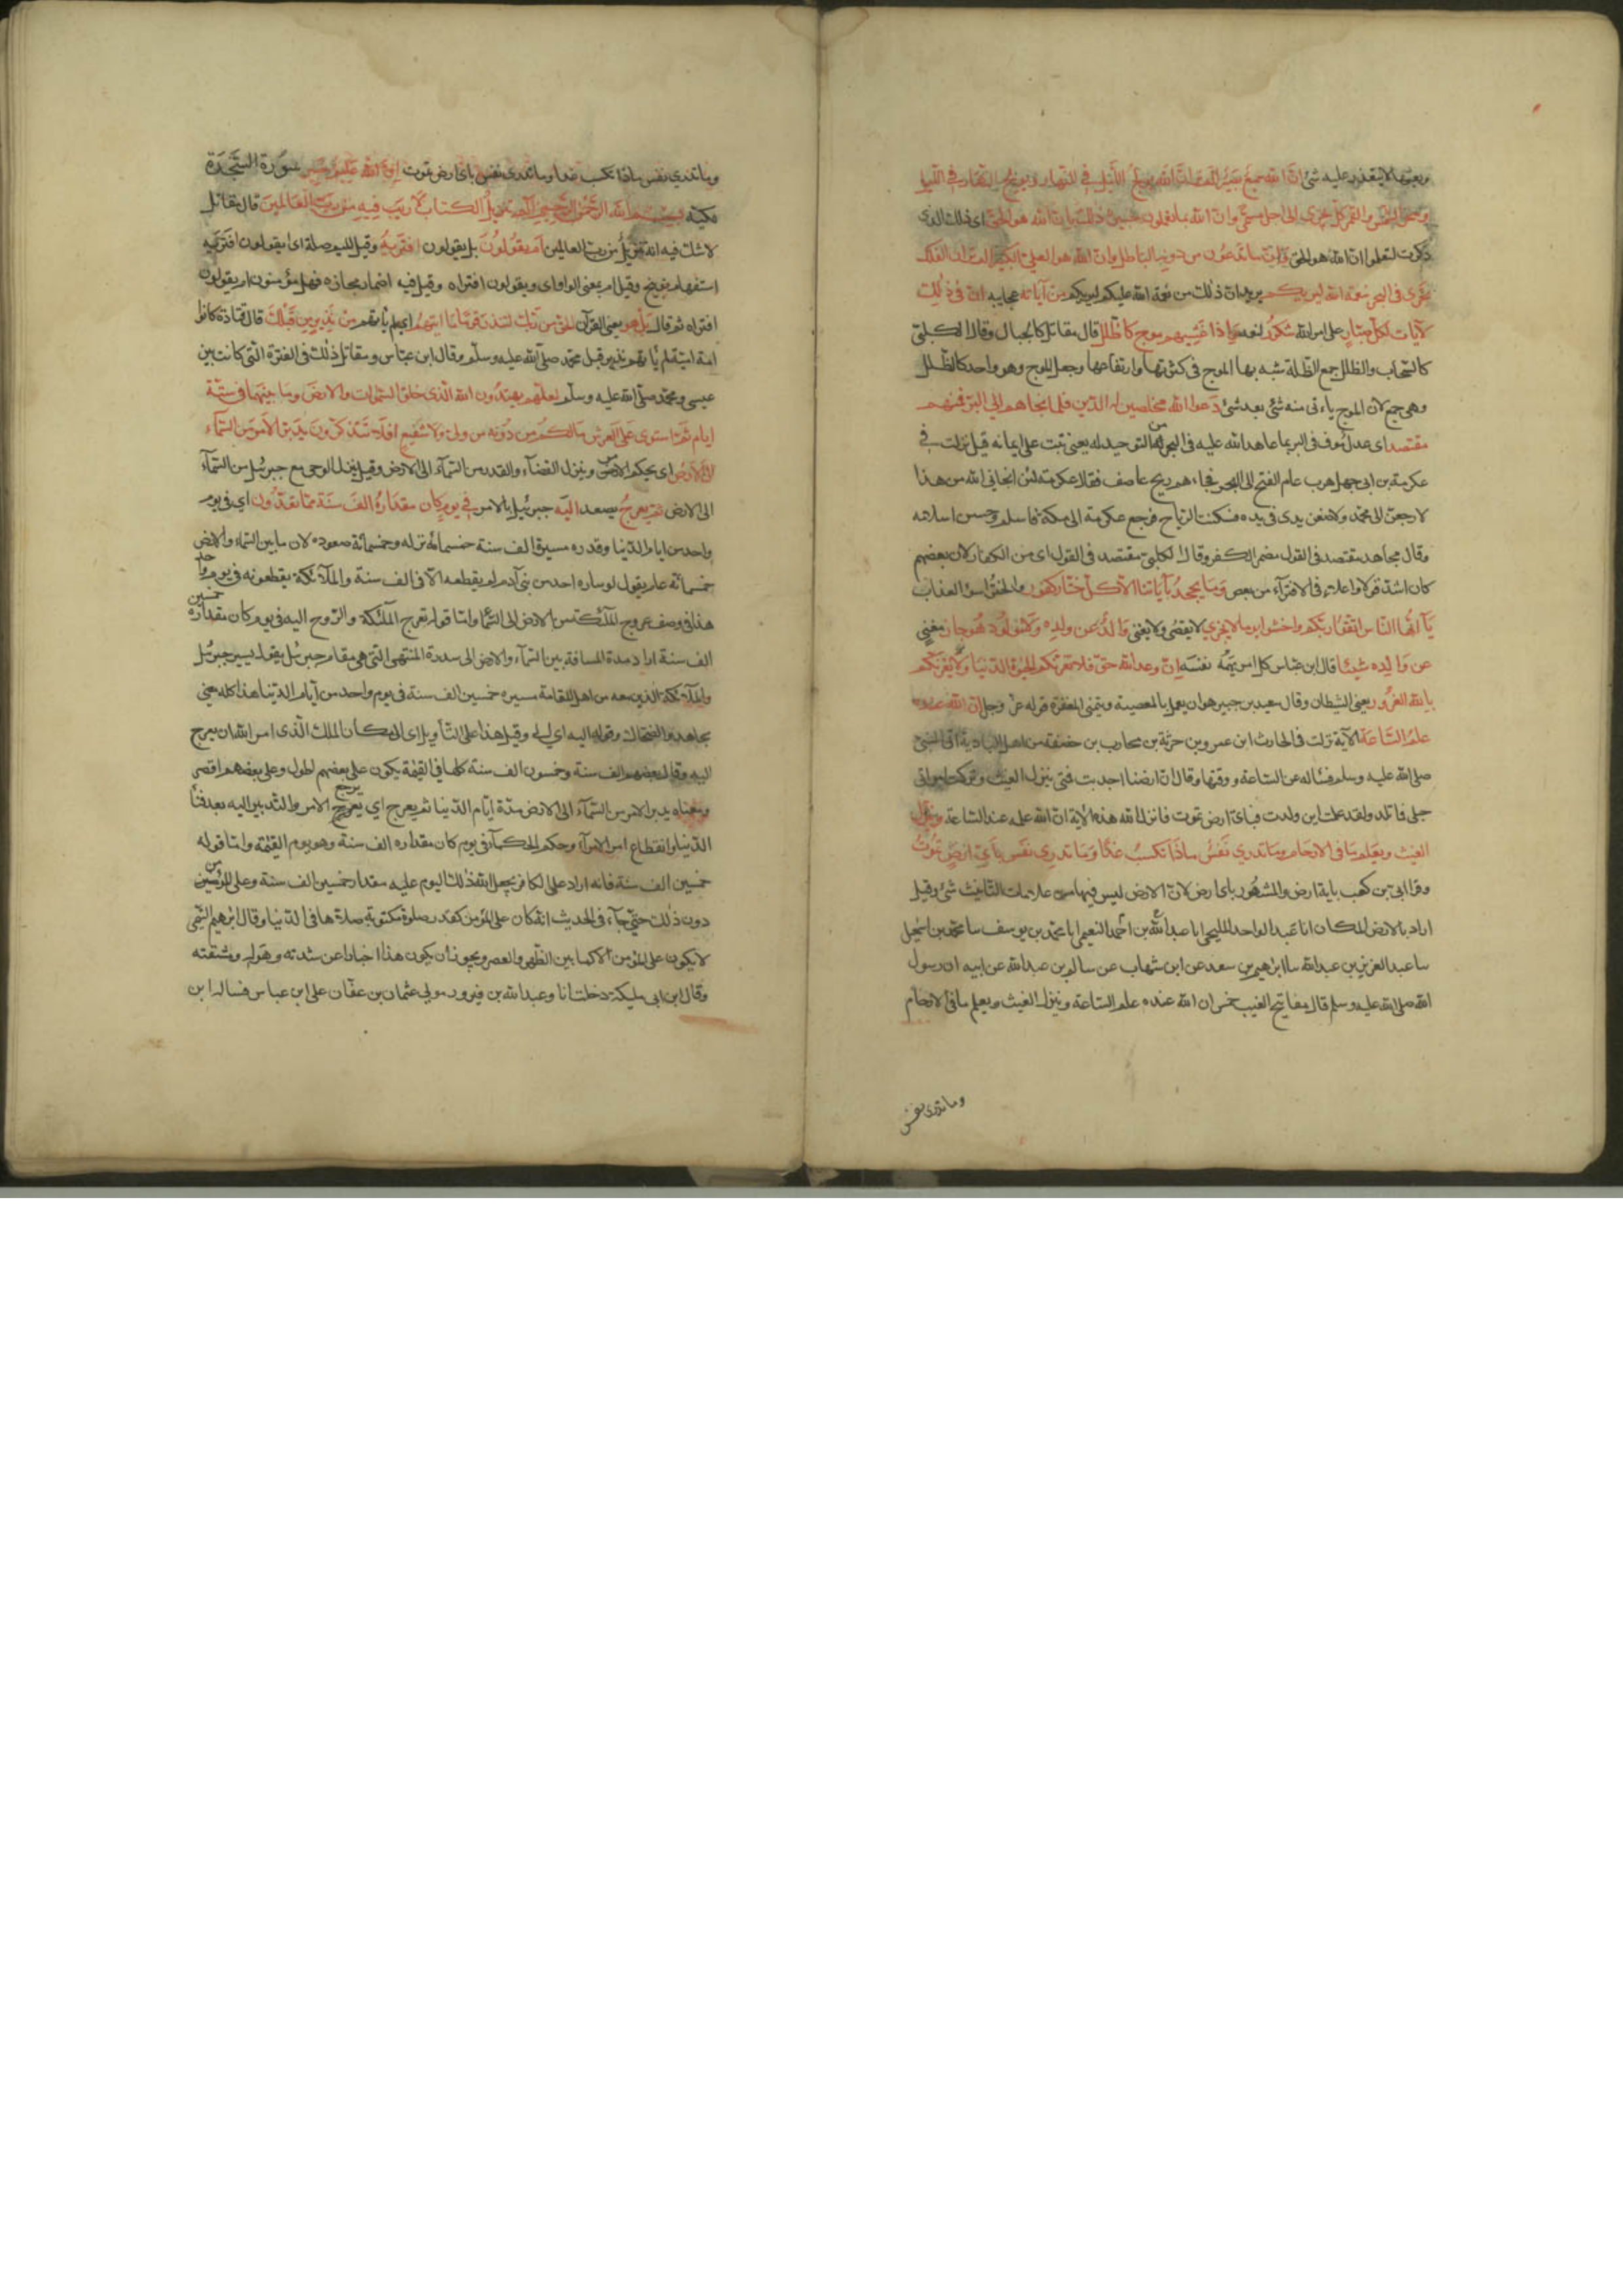 وبعثها لا يتعذر عليه شئ ان الله سميع بصير الم تر ان الله يولج الليل في النهار ويولج النهار في الليل
وسخر الشمس والقمر كل يجرى الى اجل مسمى وان الله بما تعملون خبير ذلك بان الله هو الحق اى ذلك الذى
ذكرت لتعلموا ان الله هو الحق وان ما تدعون من دونه الباطل وان الله هو العلي الكبير الم تر ان الفلك
تجرى في البحر بنعمة الله ليريكم يريد ان ذلك من نعمة الله عليكم ليريكم من آياته عجايبه ان في ذلك
لآيات لكل صبار على امر الله شكور لنعمه واذا غشيهم موج كالظلل قال مقاتل كالجبال وقال الكلبى
كالسحاب والظلل جمع الظلة شبه بها الموج في كثرتها وارتفاعها وجعل الموج وهو واحد كالظلل
وهى جمع لان الموج ياتى منه شئ بعد شئ دعوا الله مخلصين له الدين فلما نجاهم الى البر فمنهم
مقتصد اى عدل موف في البر بما عاهد الله عليه في البحر من التوحيد له يعنى ثبت على ايمانه قيل نزلت في
عكرمة بن ابى جهل هرب عام الفتح الى البحر فجاءهم ريح عاصف فقال عكرمة لئن انجانى الله من هذا
لارجعن الى محمد ولاضعن يدى في يده فسكنت الرياح فرجع عكرمة الى مكة فاسلم وحسن اسلامه
وقال مجاهد مقتصد في القول مضمر الكفر وقال الكلبى مقتصد في القول اى من الكفار لان بعضهم
كان اشد قولا واعلا في الافترآء من بعض وما يجحد بآياتنا الا كل ختار كفور والختر اسوأ العذاب
يآ ايها الناس اتقوا ربكم واخشوا يوما لا يجزي لا يقضى ولا يغنى والد عن ولده ولا مولود هو جاز مغني
عن والده شيئا قال ابن عباس كل امرئ يهمه نفسه ان وعد الله حق فلا تغرنكم الحيوة الدنيا ولا يغرنكم
بالله الغرور يعنى الشيطان وقال سعيد بن جبير هو ان يعمل بالمعصية ويتمنى المغفرة قوله عز وجل ان الله عنده
علم الساعة الآية نزلت في الحارث ابن عمرو بن حارثة بن محارب بن حفصة من اهل البادية اتى النبي
صلى الله عليه وسلم فسأله عن الساعة ووقتها وقال ان ارضنا اجدبت فمتى ينزل الغيث وتركت امراتى
حبلى فما تلد ولقد علمت اين ولدت فباى ارض تموت فانزل الله هذه الاية ان الله عنده علم الساعة وينزل
الغيث ويعلم ما في الارحام وما تدري نفس ماذا تكسب غدا وما تدري نفس باي ارض تموت
وقرا ابى بن كعب باية ارض والمشهور باى ارض لان الارض ليس فيها من علامات التانيث شئ وقيل
اراد بالارض المكان انا عبد الواحد المليحى انا احمد بن عبد الله النعيمى انا محمد بن يوسف سا محمد بن اسمعيل
سا عبد العزيز بن عبد الله سا ابرهيم بن سعد عن ابن شهاب عن سالم بن عبد الله عن ابيه ان رسول
الله صلى الله عليه وسلم قال مفاتيح الغيب خمس ان الله عنده علم الساعة وينزل الغيث ويعلم ما في الارحام
وما تدرى نفس
وما تدري نفس ماذا تكسب غدا وما تدرى نفس باى ارض تموت ان الله عليم خبير سورة السجدة
مكية بسم الله الرحمن الرحيم الم تنزيل الكتاب لا ريب فيه من رب العالمين قال مقاتل
لا شك فيه انه تنزيل من رب العالمين ام يقولون بل يقولون افتريه وقيل الميم صلة اى ايقولون افتريه
استفهام توبيخ وقيل ام بمعنى الواو اى ويقولون افتراه وقيل فيه اضمار مجازه فهل يؤمنون ام يقولون
افتراه ثم قال بل هو يعنى القرآن الحق من ربك لتنذر قوما ما اتيهم اى لم ياتهم من نذير من قبلك قال قتادة كانوا
امة امية لم ياتهم نذير قبل محمد صلى الله عليه وسلم وقال ابن عباس ومقاتل ذلك في الفترة التى كانت بين
عيسى ومحمد صلى الله عليه وسلم لعلهم يهتدون الله الذى خلق السموات والارض وما بينهما في ستة
ايام ثم استوى على العرش ما لكم من دونه من ولى ولا شفيع افلا تتذكرون يدبر الامر من السمآء
الى الارض اى يحكم الامر وينزل القضآء والقدر من السمآء الى الارض وقيل ينزل الوحى مع جبرئيل من السمآء
الى الارض ثم يعرج يصعد اليه جبرئيل بالامر في يوم كان مقداره الف سنة مما تعدون اى في يوم
واحد من ايام الدنيا وقدر مسيرة الف سنة خمسمائة نزله وخمسمائة صعوده لان ما بين السماء والارض
خمسمائة عام يقول لو ساره احد من بنى آدم لم يقطعه الا في الف سنة والملآئكة يقطعونه في يوم واحد
هذا في وصف عروج الملئكة من الارض الى السما واما قوله تعرج الملئكة والروح اليه في يوم كان مقداره خمسين
الف سنة اراد مدة المسافة بين السمآء والارض الى سدرة المنتهى التى هى مقام جبرئيل يقول يسير جبرئيل
والملآئكة الذين معه من اهل مقامه مسيرة خمسين الف سنة في يوم واحد من ايام الدنيا هذا كله معنى
مجاهد والضحاك وقوله اليه اى الى الله وقيل هذا على التأويل اى الى مكان الملك الذى امر الله ان يعرج
اليه وقال بعضهم الف سنة وخمسون الف سنة كلها في القيمة يكون على بعضهم اطول وعلى بعضهم اقصر
ومعناه يدبر الامر من السمآء الى الارض مدة ايام الدنيا ثم يعرج اي يرجع الامر والتدبير اليه بعد فنا
الدنيا وانقطاع امر الامرآء وحكم الحكمآء في يوم كان مقداره الف سنة وهو يوم القيمة واما قوله
خمسين الف سنة فانه اراد على الكافر يجعل الله ذلك اليوم عليه مقدار خمسين الف سنة وعلى المؤمنين
دون ذلك حتى جآء في الحديث انه كان على المؤمن كقدر صلوة مكتوبة صلاها في الدنيا وقال ابرهيم التيمى
لا يكون على المؤمن الا كما بين الظهر والعصر ويجوز ان يكون هذا اخبارا عن شدته وهوله ومشقته
وقال ابن ابى مليكة دخلت انا وعبد الله بن فيروز مولى عثمان بن عفان على ابن عباس فساله ابن